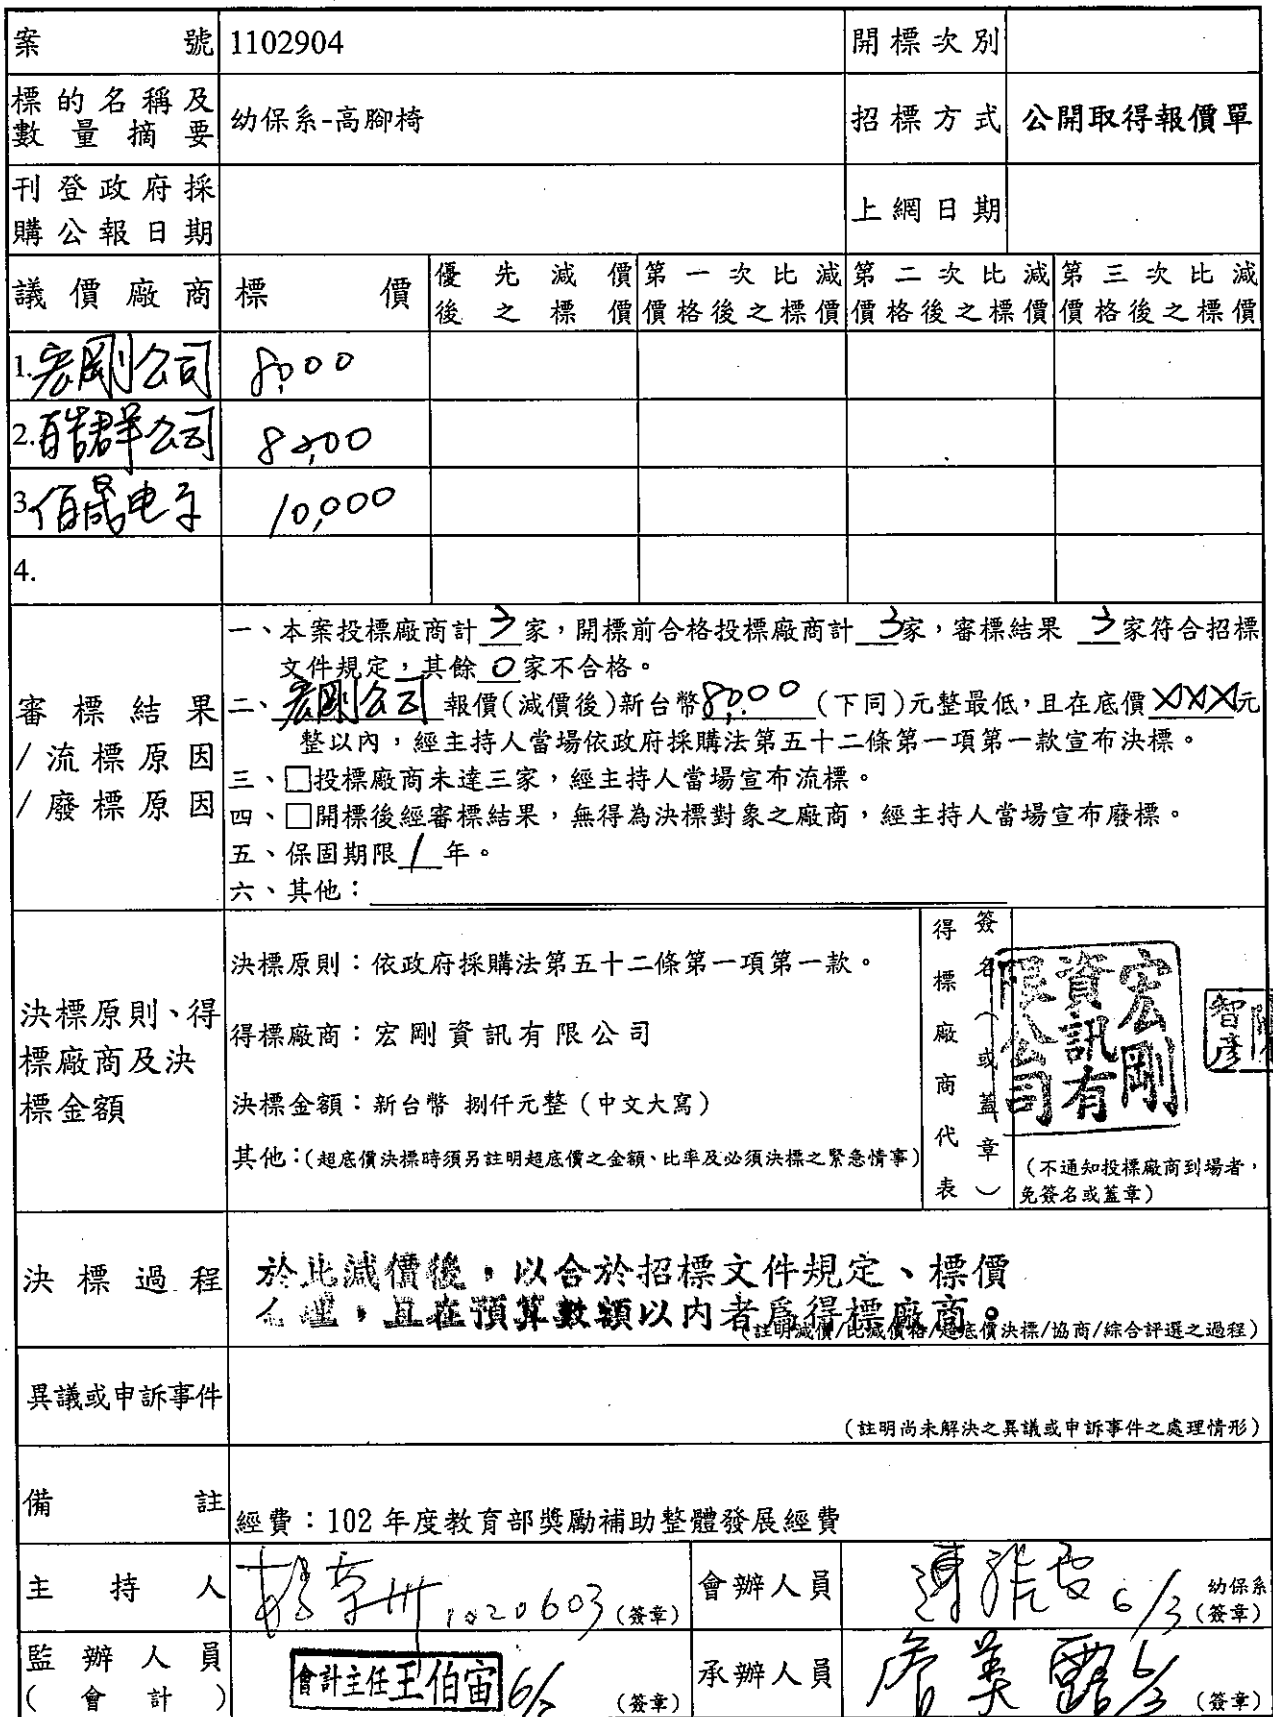 案號 1102904 開標次別
標的名稱及數量摘要 幼保系-高腳椅 招標方式 公開取得報價單
刊登政府採購公報日期 上網日期
議價廠商 標價 優先減價後之標價 第一次比減價格後之標價 第二次比減價格後之標價 第三次比減價格後之標價
1.宏剛公司 8,000
2.皓群公司
3.佰晟电子 10,000
4.
審標結果/流標原因/廢標原因
一、本案投標廠商計 3 家，開標前合格投標廠商計 3 家，審標結果 3 家符合招標
文件規定，其餘 0 家不合格。
二、宏剛公司 報價(減價後)新台幣8,000 (下同)元整最低，且在底價XXX元
整以內，經主持人當場依政府採購法第五十二條第一項第一款宣布決標。
三、□投標廠商未達三家，經主持人當場宣布流標。
四、□開標後經審標結果，無得為決標對象之廠商，經主持人當場宣布廢標。
五、保固期限 1 年。
六、其他：
決標原則、得標廠商及決標金額
決標原則：依政府採購法第五十二條第一項第一款。
得標廠商：宏剛資訊有限公司
決標金額：新台幣 捌仟元整（中文大寫）
其他：(超底價決標時須另註明超底價之金額、比率及必須決標之緊急情事)
得標廠商代表
簽名（或蓋章）
宏剛資訊有限公司
智彥
(不通知投標廠商到場者，
免簽名或蓋章)
決標過程
於比減價後，以合於招標文件規定、標價
合理，且在預算數額以內者爲得標廠商。
(註明減價/比減價格/超底價決標/協商/綜合評選之過程)
異議或申訴事件
(註明尚未解決之異議或申訴事件之處理情形)
備註 經費：102 年度教育部獎勵補助整體發展經費
主持人 1020603 (簽章) 會辦人員 6/3 幼保系 (簽章)
監辦人員(會計) 會計主任王伯宙 (簽章) 承辦人員 詹美露 6/3 (簽章)